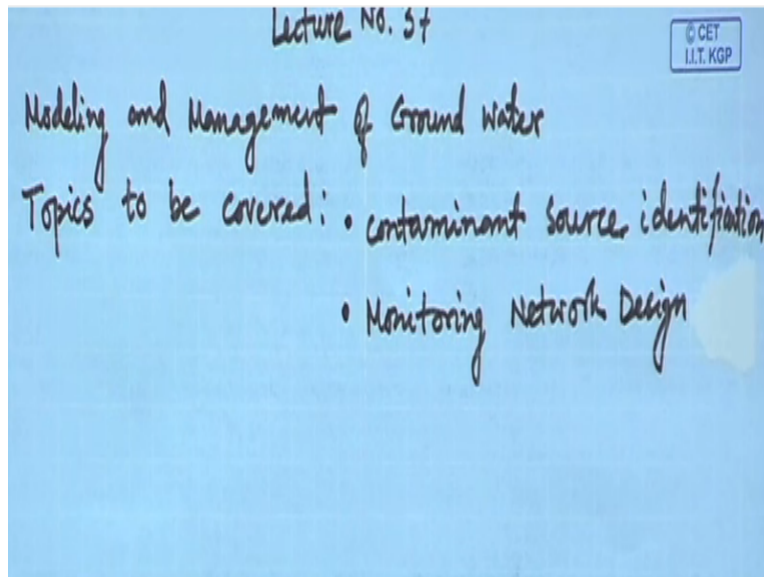 Lecture No. 37
© CET
I.I.T. KGP
Modeling and Management of Ground water
Topics to be covered: • contaminant source identification
• Monitoring Network Design